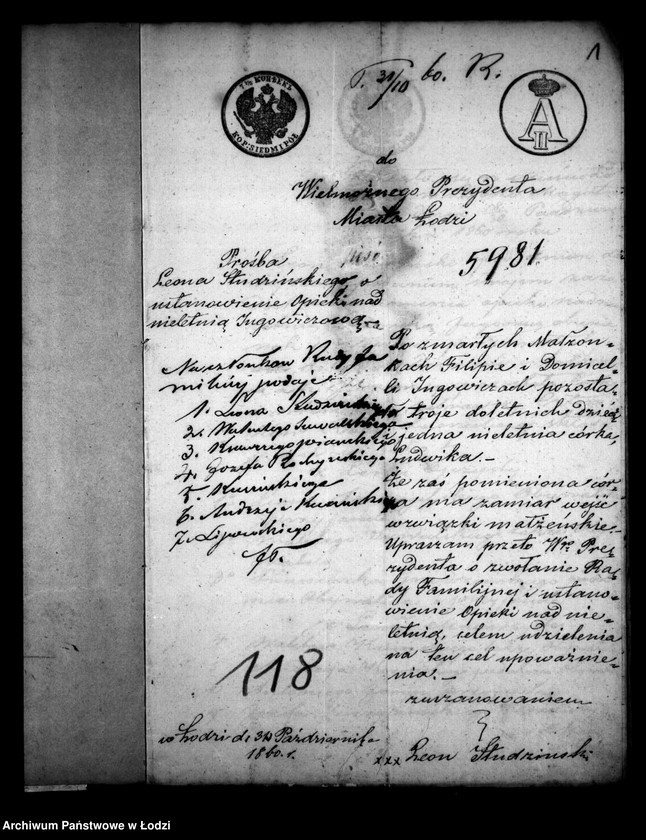 1
7½ KOPEEK
KOP. SIEDM I PÓŁ
31/10 60. R.
A II
do
Wielmożnego Prezydenta
Miasta Łodzi
5981
Prośba
Leona Studzińskiego o
ustanowienie Opieki nad
nieletnią Ingowiczową
Na członków Rady fa
milijnej podaję
1. Leona Studzińskiego
2. Walentego
3.
4. Józefa
5.
6. Andrzeja
7. Lipowskiego
Po zmarłych Małżon-
kach Filipie i Domicel-
li Ingowiczach pozosta-
ło troje doletnich dzieci
i jedna nieletnia córka,
Ludwika.-
Że zaś pomieniona cór-
ka ma zamiar wejść
w związki małżeńskie
Upraszam przeto Wgo Pre-
zydenta o zwołanie Ra-
dy Familijnej i ustano-
wienie Opieki nad nie-
letnią, celem udzielenia
na ten cel upoważnie-
nia.-
z uszanowaniem
118
w Łodzi d. 31 Października
1860. r.
xxx Leon Studzinski
Archiwum Państwowe w Łodzi